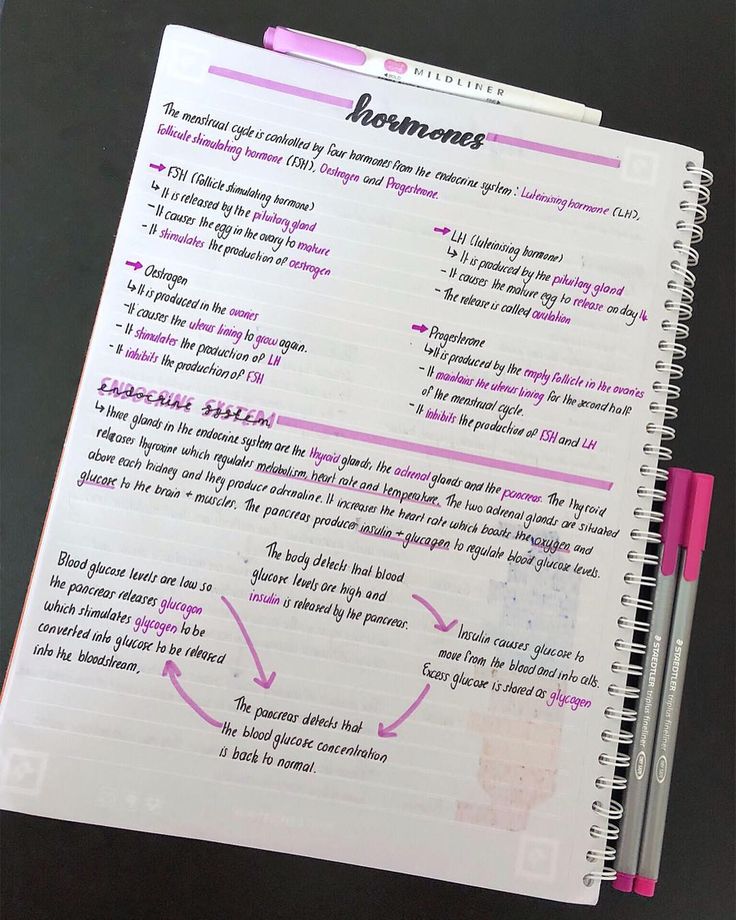 MILDLINER
hormones
The menstrual cycle is controlled by four hormones from the endocrine system: Luteinising hormone (LH),
Follicule stimulating hormone (FSH), Oestrogen and Progesterone.
→ FSH (Follicle stimulating hormone)
↳ It is released by the pituitary gland
- It causes the egg in the ovary to mature
- It stimulates the production of oestrogen
→ LH (luteinising hormone)
↳ It is produced by the pituitary gland
- It causes the mature egg to release on day 14
- The release is called ovulation
→ Oestrogen
↳ It is produced in the ovaries
- It causes the uterus lining to grow again.
- It stimulates the production of LH
- It inhibits the production of FSH
→ Progesterone
↳ It is produced by the empty follicle in the ovaries
- It maintains the uterus lining for the second half
of the menstrual cycle.
- It inhibits the production of FSH and LH
ENDOCRINE SYSTEM
endocrine system
↳ three glands in the endocrine system are the thyroid glands, the adrenal glands and the pancreas. The thyroid
releases thyroxine which regulates metabolism, heart rate and temperature. The two adrenal glands are situated
above each kidney and they produce adrenaline. It increases the heart rate which boosts the oxygen and
glucose to the brain + muscles. The pancreas produces insulin + glucagen to regulate blood glucose levels.
The body detects that blood
glucose levels are high and
insulin is released by the pancreas.
Insulin causes glucose to
move from the blood and into cells.
Excess glucose is stored as glycogen
The pancreas detects that
the blood glucose concentration
is back to normal.
Blood glucose levels are low so
the pancreas releases glucagon
which stimulates glycogen to be
converted into glucose to be released
into the bloodstream.
STAEDTLER triplus fineliner
STAEDTLER triplus fineliner